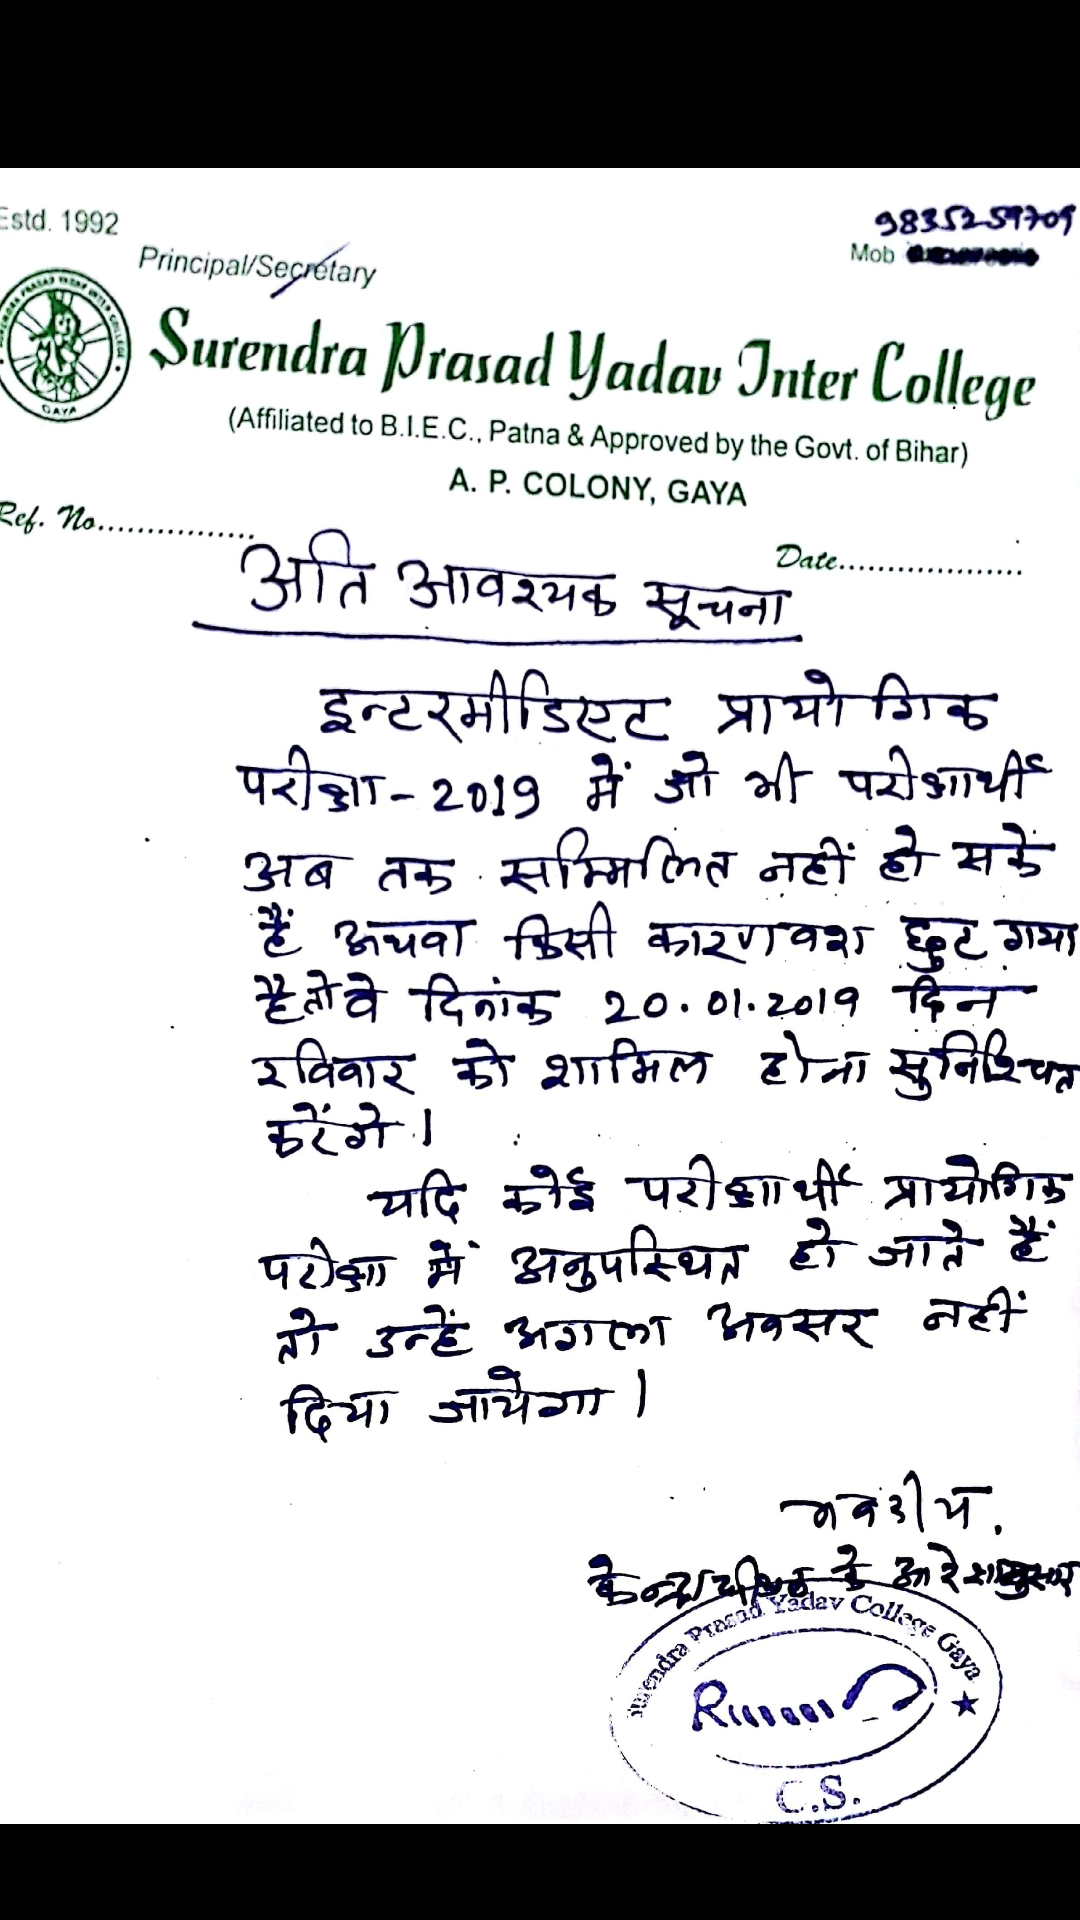 Estd. 1992
9835259709
Mob
Principal/Secretary
Surendra Prasad Yadav Inter College
(Affiliated to B.I.E.C., Patna & Approved by the Govt. of Bihar)
A. P. COLONY, GAYA
Ref. No...............
Date...................
अति आवश्यक सूचना
इन्टरमीडिएट प्रायोगिक
परीक्षा-2019 में जो भी परीक्षार्थी
अब तक सम्मिलित नहीं हो सके
हैं अथवा किसी कारणवश छुट गया
है तो वे दिनांक 20.01.2019 दिन
रविवार को शामिल होना सुनिश्चित
करेंगे।
यदि कोई परीक्षार्थी प्रायोगिक
परीक्षा में अनुपस्थित हो जाते हैं
तो उन्हें अगला अवसर नहीं
दिया जायेगा।
भवदीय.
केन्द्राधीक्षक के आदेशानुसार
Surendra Prasad Yadav College Gaya
C.S.